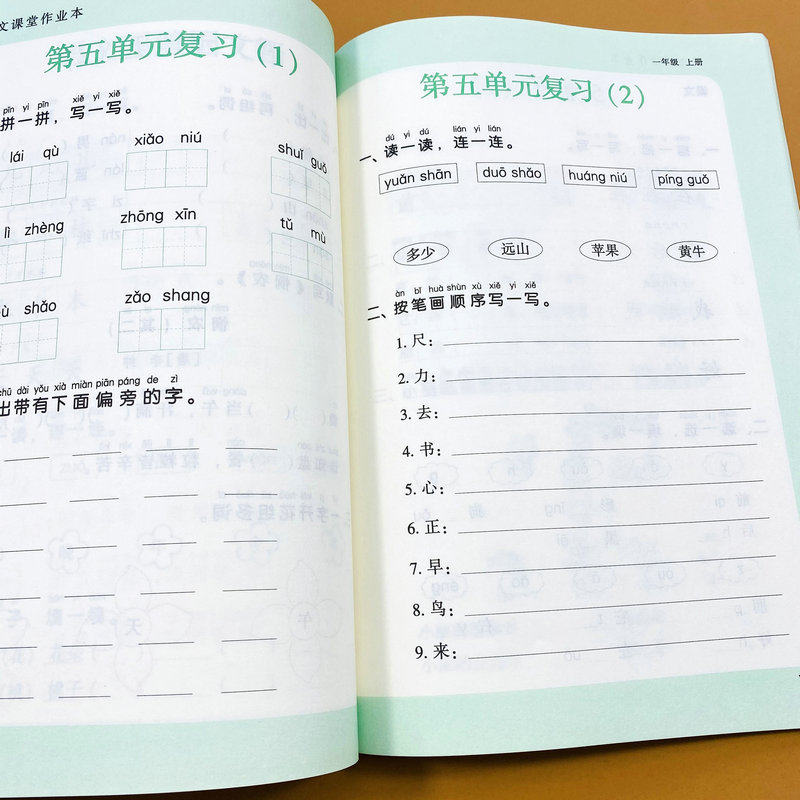 文课堂作业本
第五单元复习（1）
pīn yi pīn xiě yi xiě
拼一拼，写一写。
lái qù xiǎo niú shuǐ guǒ
lì zhèng zhōng xīn tǔ mù
shǎo zǎo shang
chū dài yǒu xià miàn piān páng de zì
出带有下面偏旁的字。
一年级 上册
第五单元复习（2）
dú yi dú lián yi lián
一、读一读，连一连。
yuǎn shān duō shǎo huáng niú píng guǒ
多少 远山 苹果 黄牛
àn bǐ huà shùn xù xiě yi xiě
二、按笔画顺序写一写。
1. 尺：
2. 力：
3. 去：
4. 书：
5. 心：
6. 正：
7. 早：
8. 鸟：
9. 来：